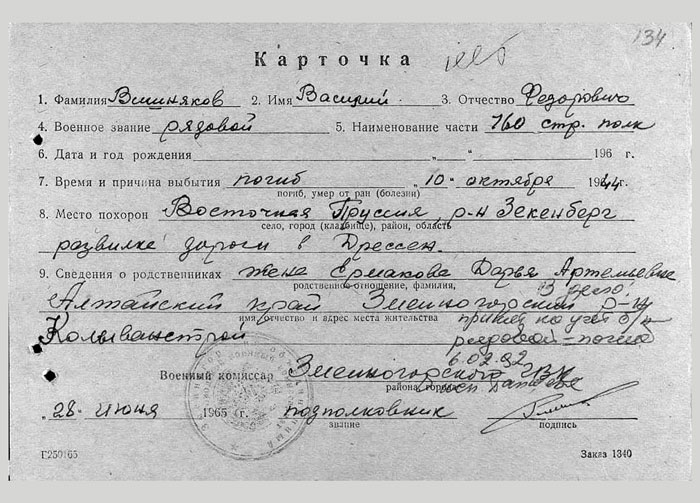 134
Карточка
1. Фамилия Вишняков 2. Имя Василий 3. Отчество Федорович
4. Военное звание рядовой 5. Наименование части 160 стр. полк
6. Дата и год рождения „ “ 196 г.
7. Время и причина выбытия погиб „10“ октября 1944 г.
погиб, умер от ран (болезни)
8. Место похорон Восточная Пруссия, р-н Зекенберг
село, город (кладбище), район, область
развилке дороги в Дрессен.
9. Сведения о родственниках жена Ермакова Дарья Артемьевна
родственное отношение, фамилия,
Алтайский край Змеиногорский р-н
имя отчество и адрес места жительства
Колыванстрой
рядовой - погиб
6.02.92
Военный комиссар Змеиногорского ГВК
района, города
„28“ июня 1965 г. подполковник
звание подпись
Г250165 Заказ 1340